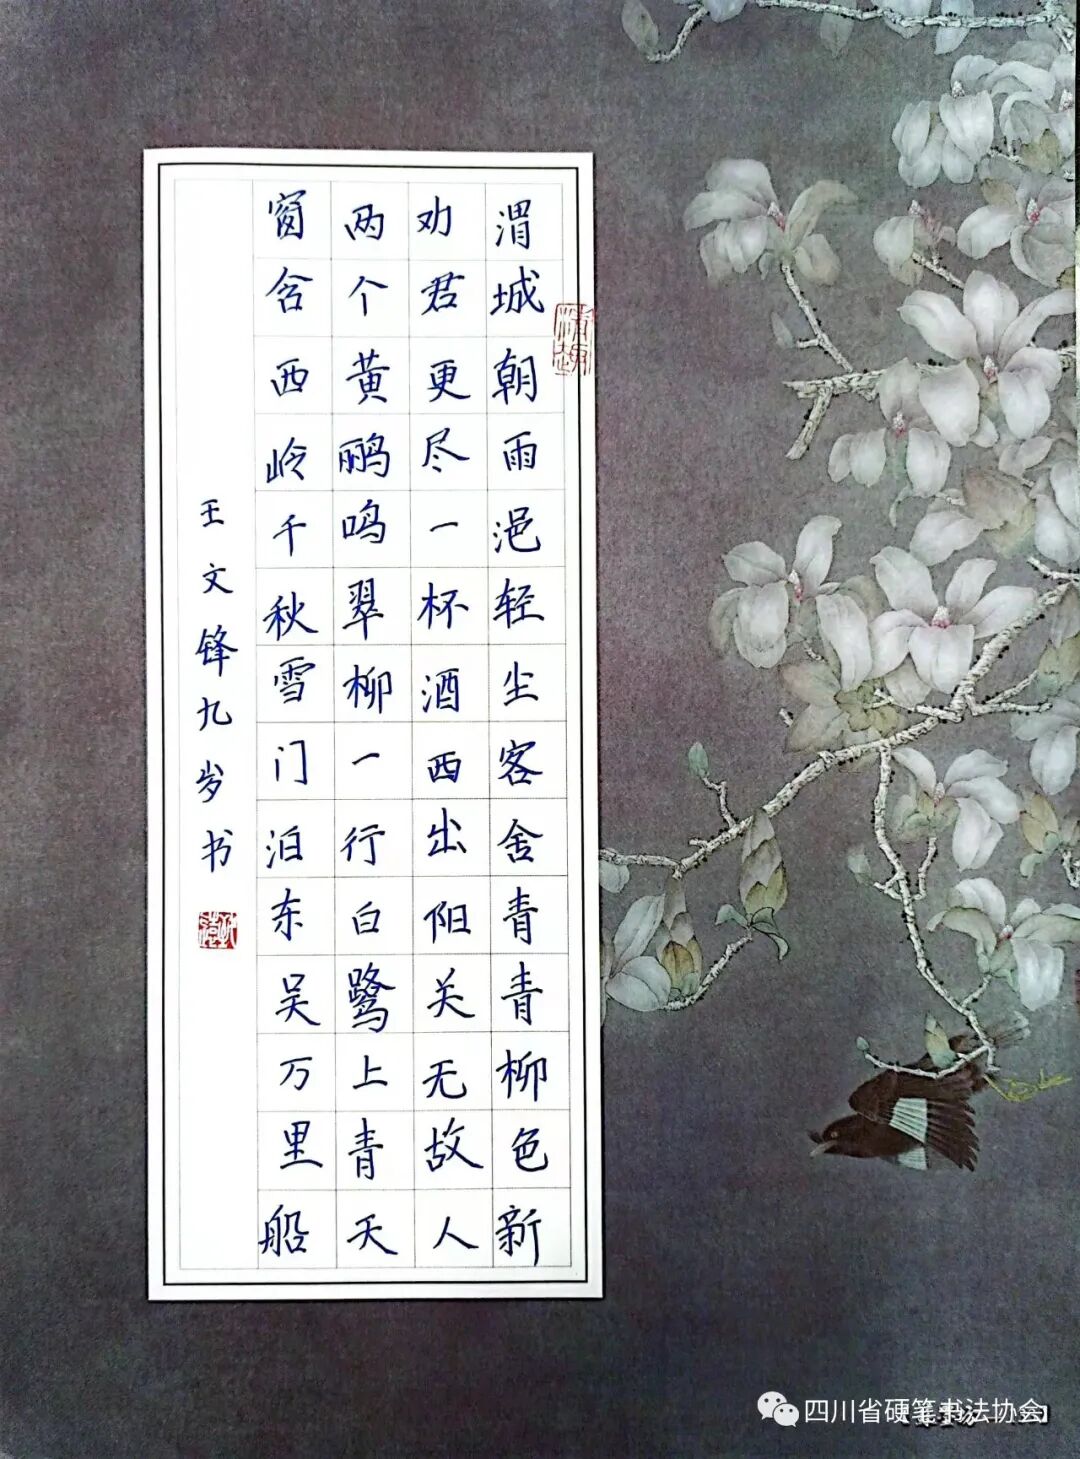 渭城朝雨浥轻尘客舍青青柳色新
劝君更尽一杯酒西出阳关无故人
两个黄鹂鸣翠柳一行白鹭上青天
窗含西岭千秋雪门泊东吴万里船
王文锋九岁书
四川省硬笔书法协会